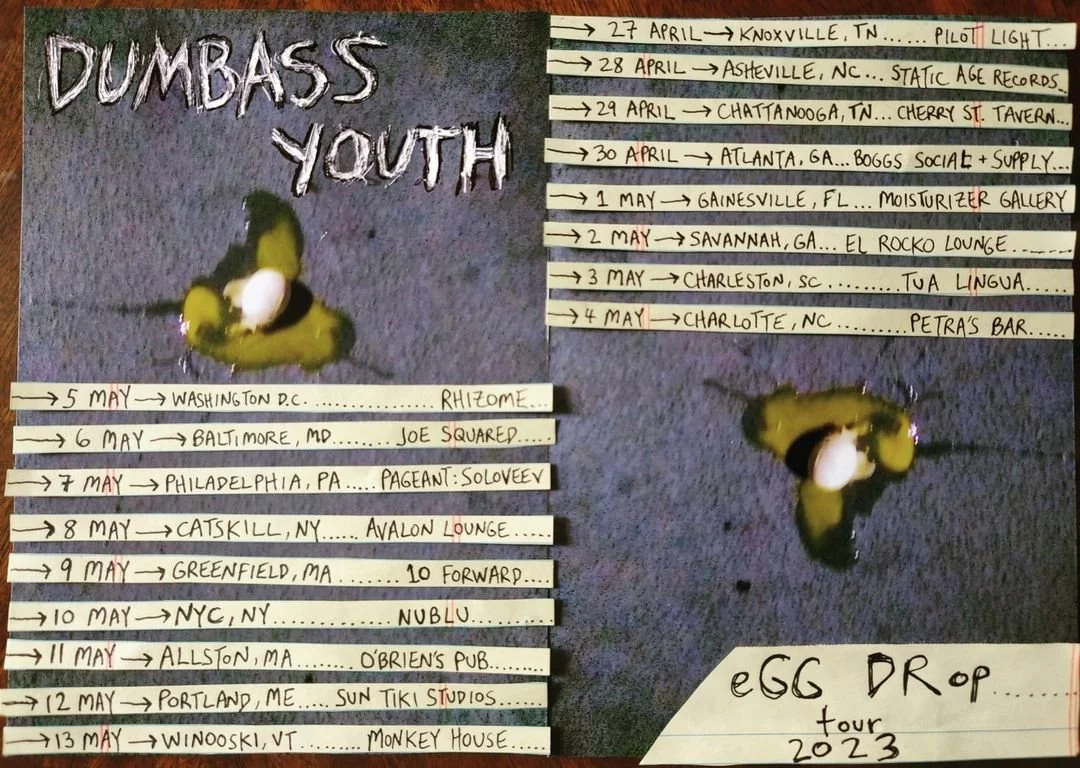 DUMBASS
YOUTH
→ 27 APRIL → KNOXVILLE, TN...... PILOT LIGHT...
→ 28 APRIL → ASHEVILLE, NC... STATIC AGE RECORDS..
→ 29 APRIL → CHATTANOOGA, TN... CHERRY ST. TAVERN...
→ 30 APRIL → ATLANTA, GA... BOGGS SOCIAL + SUPPLY...
→ 1 MAY → GAINESVILLE, FL... MOISTURIZER GALLERY
→ 2 MAY → SAVANNAH, GA... EL ROCKO LOUNGE.......
→ 3 MAY → CHARLESTON, SC .......... TUA LINGUA.....
→ 4 MAY → CHARLOTTE, NC ......... PETRA'S BAR.....
→ 5 MAY → WASHINGTON D.C. ................ RHIZOME...
→ 6 MAY → BALTIMORE, MD........ JOE SQUARED.....
→ 7 MAY → PHILADELPHIA, PA ..... PAGEANT: SOLOVEEV
→ 8 MAY → CATSKILL, NY...... AVALON LOUNGE .....
→ 9 MAY → GREENFIELD, MA ........ 10 FORWARD....
→ 10 MAY → NYC, NY ................ NUBLU..........
→ 11 MAY → ALLSTON, MA ........ O'BRIEN'S PUB.........
→ 12 MAY → PORTLAND, ME ..... SUN TIKI STUDIOS......
→ 13 MAY → WINOOSKI, VT ......... MONKEY HOUSE.....
eGG DRop........
tour
2023